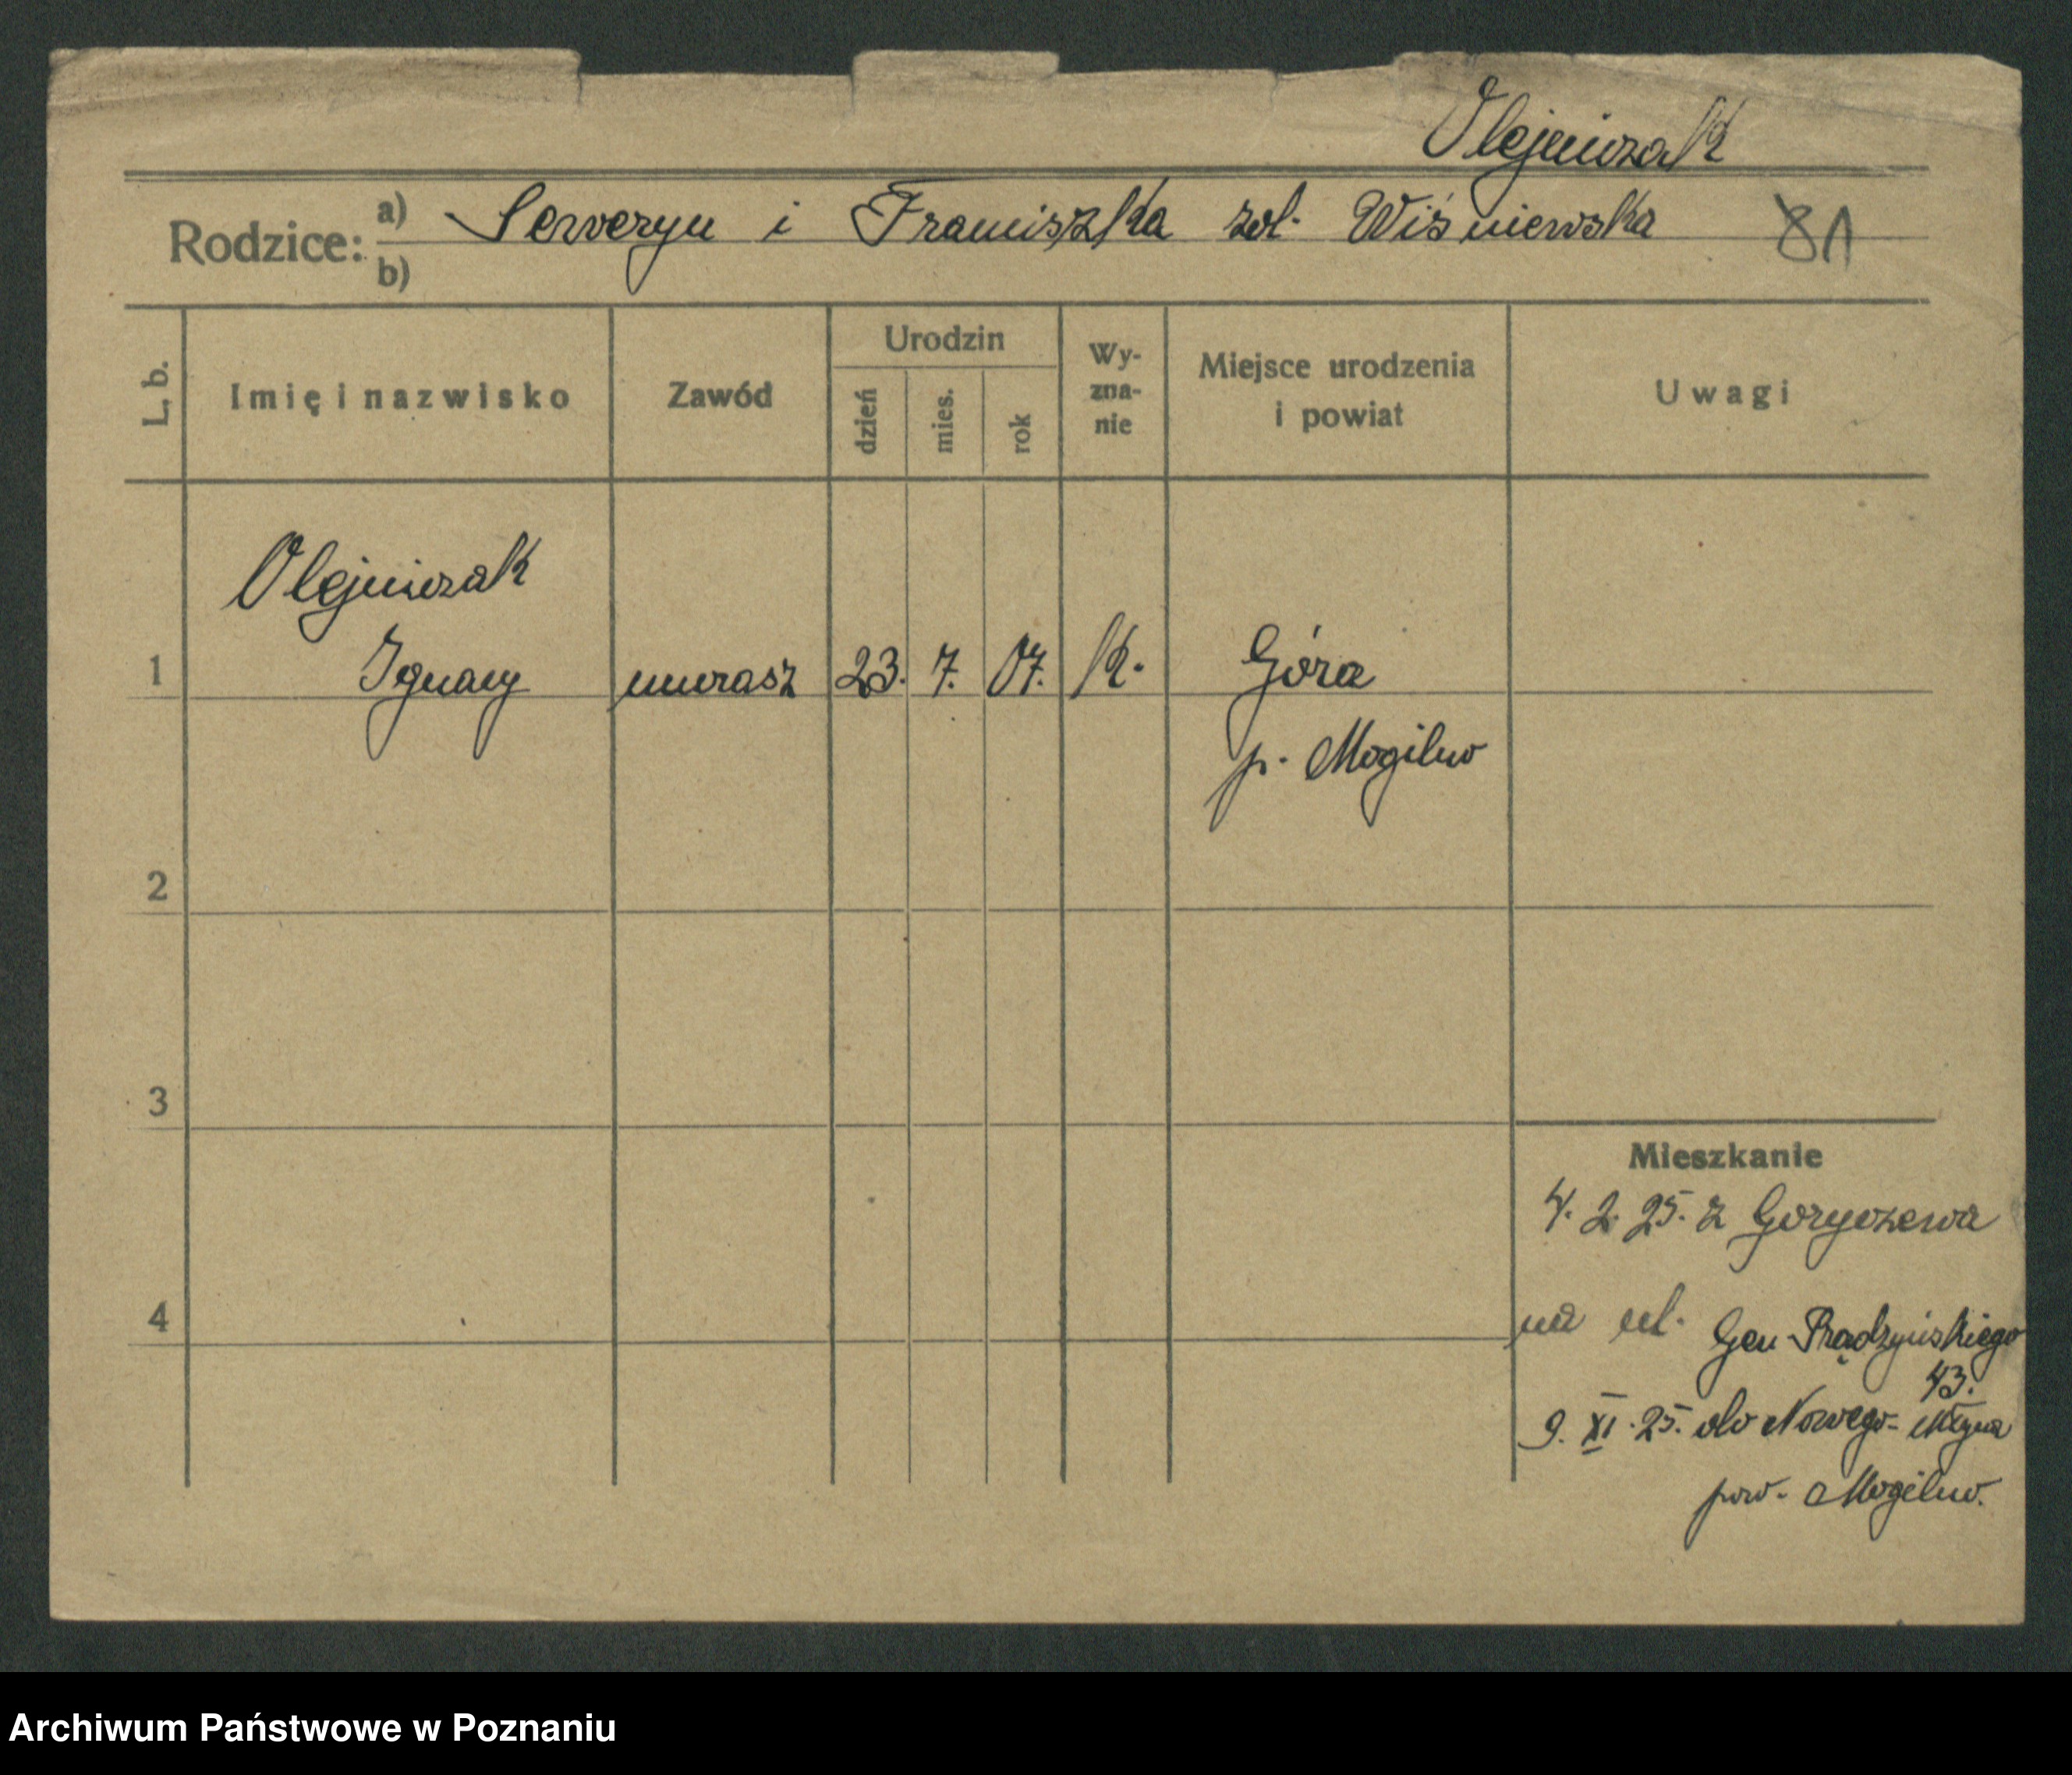 Olejniczak
Rodzice: a) Seweryn i Franciszka zd. Wiśniewska 81
b)
L. b. Imię i nazwisko Zawód Urodzin dzień mies. rok Wy-zna-nie Miejsce urodzenia i powiat Uwagi
Olejniczak
1 Ignacy murarz 23. 7. 07. k. Góra
p. Mogilno
2
3
Mieszkanie
4. 2. 25. z Goryszewa
4
na ul. Gen Prądzyńskiego
43.
9. XI. 25. do Nowego-Młyna
pow. Mogilno.
Archiwum Państwowe w Poznaniu